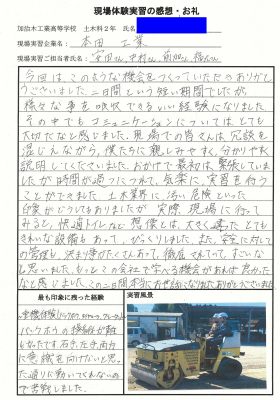 現場体験実習の感想・お礼
加治木工業高等学校 土木科2年 氏名
現場実習企業名: 本田工業
現場実習ご担当者氏名: 宮田さん、中村さん、前田さん、
今回はこのような機会をつくっていただきありがと
うございました。二日間という短い期間でしたが、
様々な事を吸収できるいい経験になりました。
その中でもコミュニケーションについてはとても
大切だなと感じました。現場での皆さんは冗談を
混じえながら、僕たちに親しみやすく、分かりやすく
説明してくださいました。おかげで最初は緊張していまし
たが時間が過ぎるにつれて、気楽に実習を行う
ことができました。土木業界に汚い危険といった
印象がどうしてもありましたが実際現場に行って
みると、快適トイレなど想像とは、大きく違ったとても
きれいな設備もあって、びっくりしました。また、安全に対して
の管理も、決まり事がたくさんあって、徹底されていて、すごいな
と思いました。もっとこの会社で学べる機会があれば良かった
なと感じました。この二日間本当にお世話になりありがとうございました。
最も印象に残った経験
実習風景
バックホウの操縦が難
しかったです。右手、左手両方
に意識を向けないと思っ
た通りに動いてくれないの
で苦戦しました。